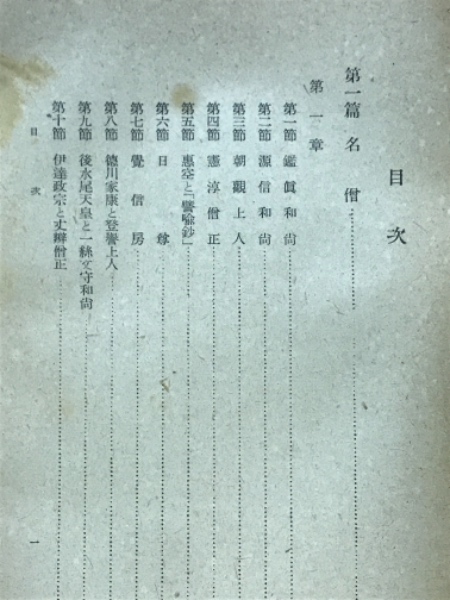 目次
第一篇 名僧
第一章
第一節 鑑眞和尚
第二節 源信和尚
第三節 朝觀上人
第四節 憲淳僧正
第五節 惠空と「譬喩鈔」
第六節 日尊
第七節 覺信房
第八節 德川家康と登譽上人
第九節 後水尾天皇と一絲文守和尚
第十節 伊達政宗と丈辨僧正
目次
一